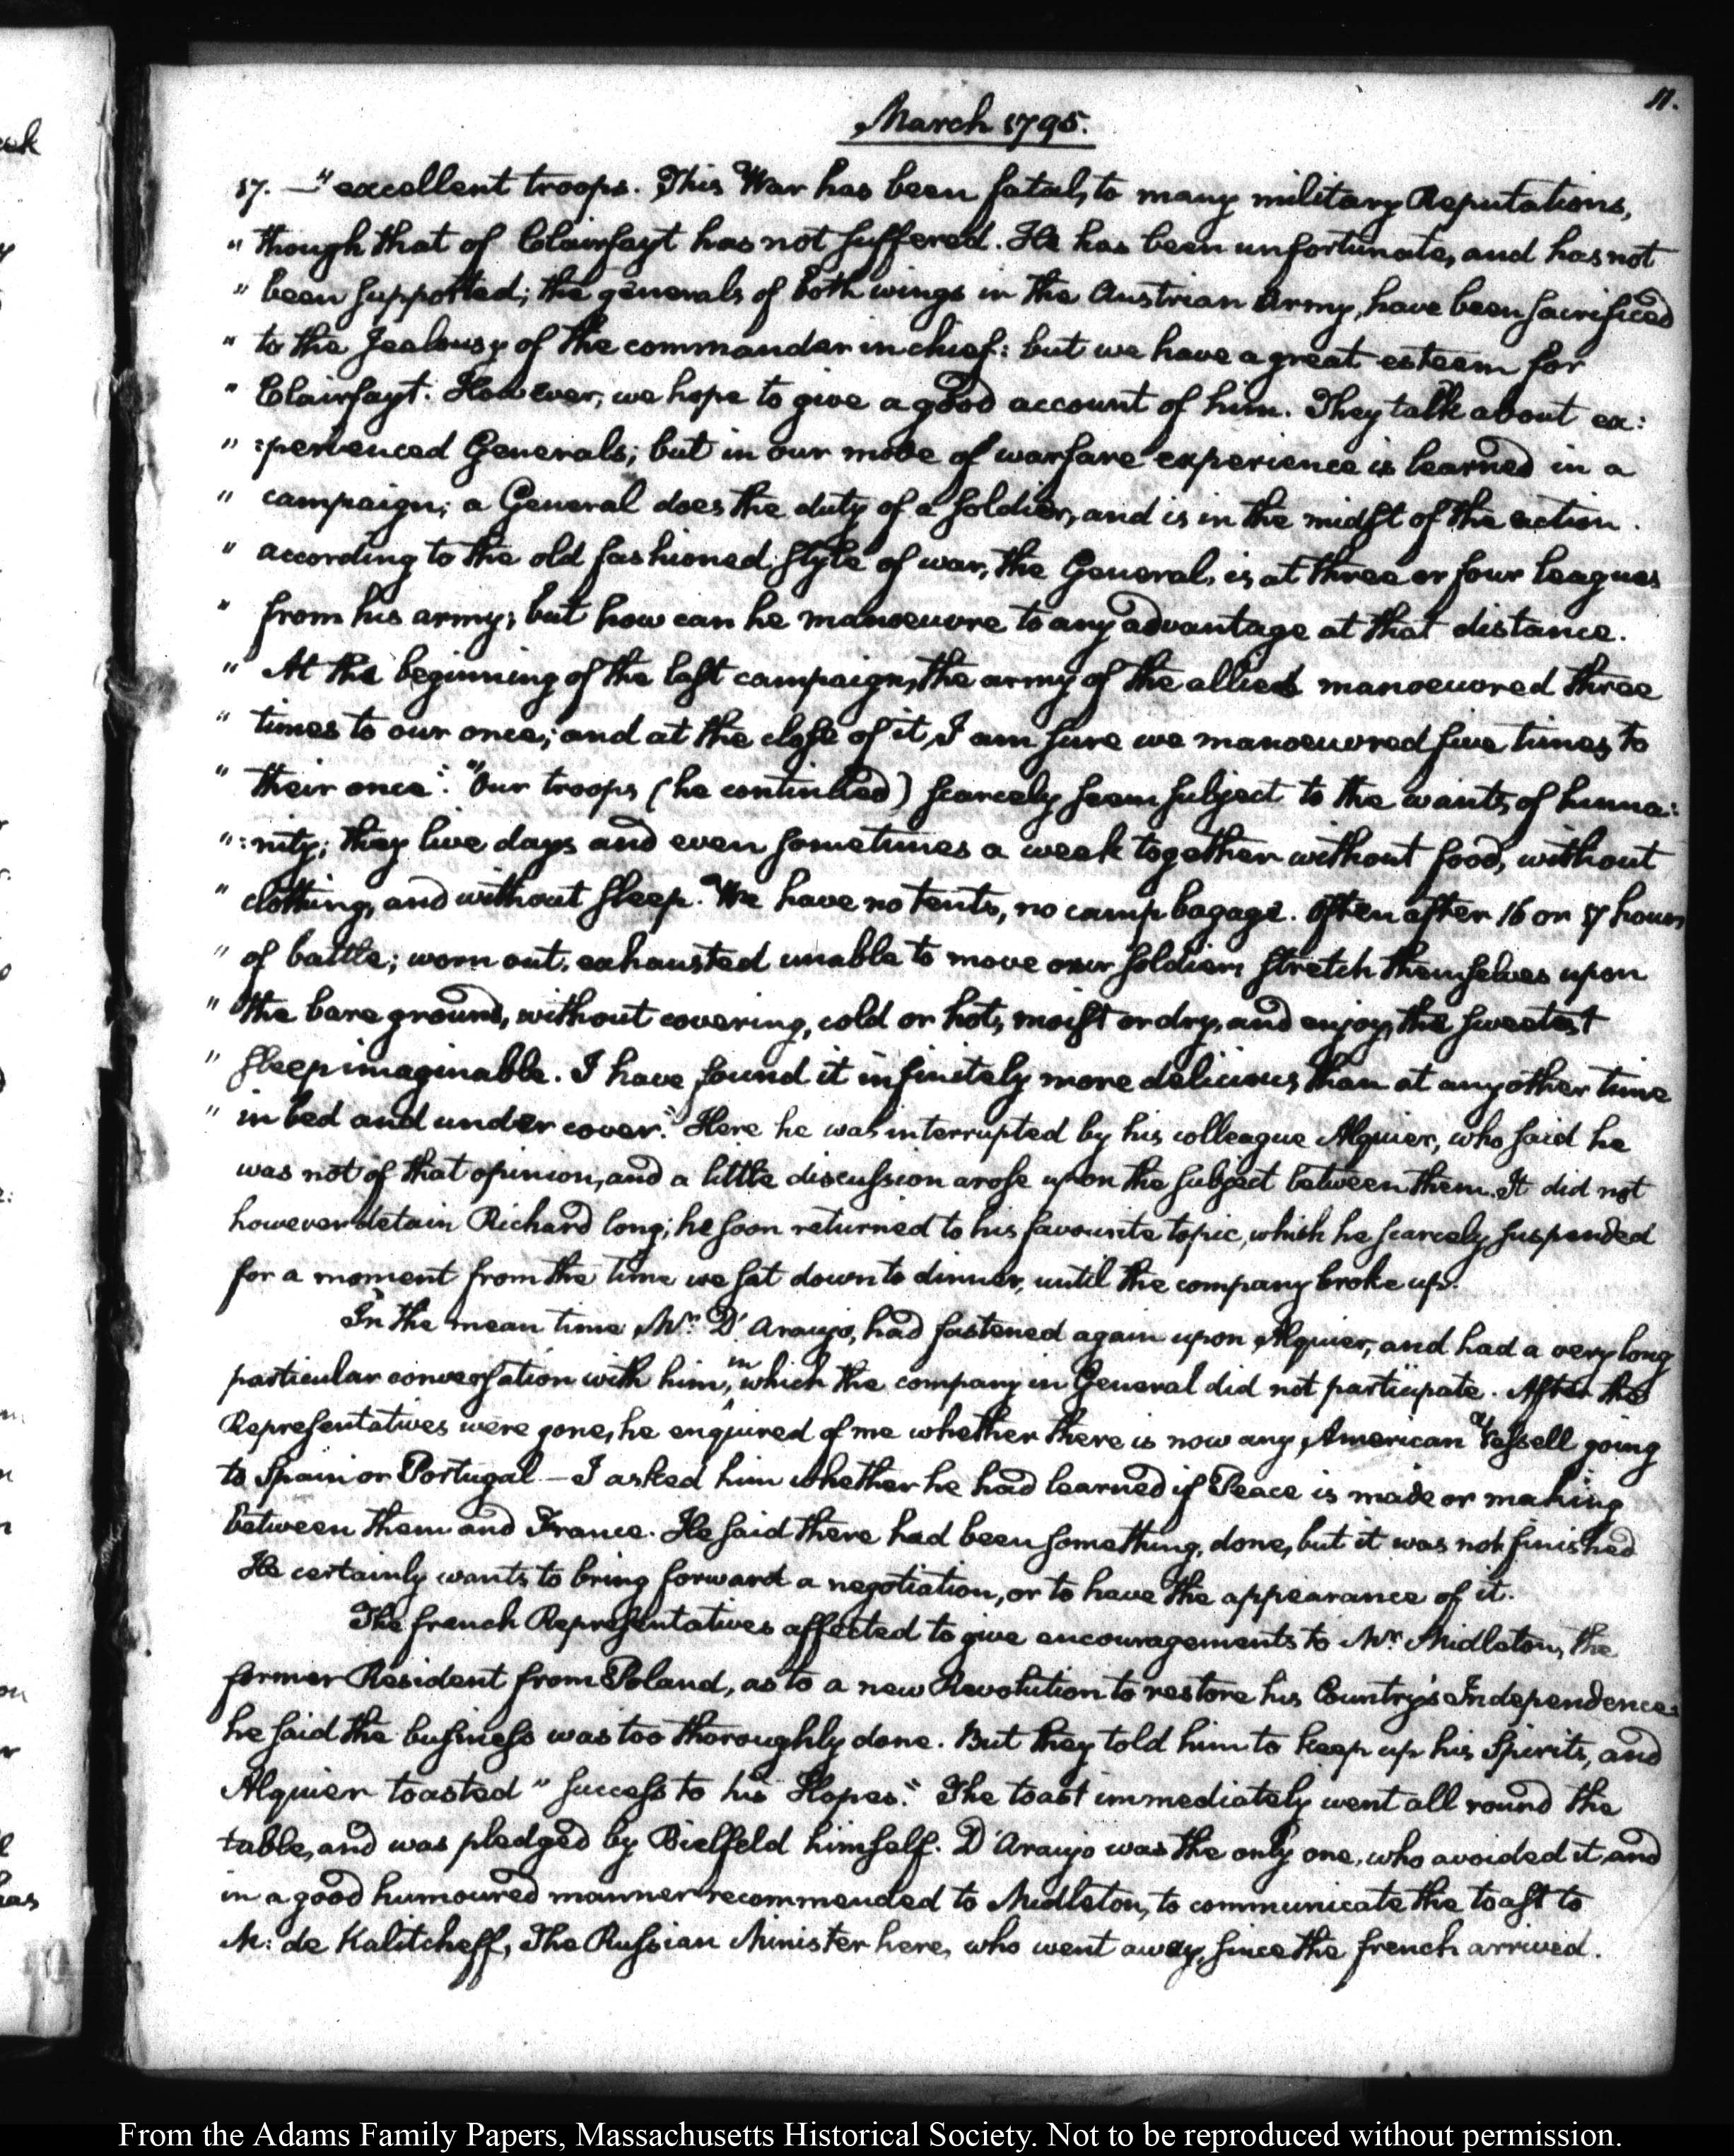 11.
March 1795.
17. —" excellent troops. This War has been fatal, to many military Reputations,
" though that of Clairfayt has not suffered. He has been unfortunate, and has not
" been supported; the generals of both wings in the Austrian Army, have been sacrificed
" to the Jealousy of the commander in chief: but we have a great esteem for
" Clairfayt. However, we hope to give a good account of him. They talk about ex:
" :perienced Generals; but in our mode of warfare experience is learned in a
" campaign; a General does the duty of a soldier, and is in the midst of the action.
" according to the old fashioned style of war, the General, is at three or four leagues
" from his army; but how can he manoeuvre to any advantage at that distance.
" At the beginning of the last campaign, the army of the allied manoeuvred three
" times to our once; and at the close of it, I am sure we manoeuvred five times to
" their once". "Our troops (he continued) scarcely seem subject to the wants of huma:
" :nity; they live days and even sometimes a week together without food, without
" clothing, and without sleep. We have no tents, no camp bagage. Often after 16 or 17 hours
" of battle; worn out, exhausted unable to move our soldiers stretch themselves upon
" the bare ground, without covering, cold or hot, moist or dry, and enjoy the sweetest
" sleep imaginable. I have found it infinitely more delicious than at any other time
" in bed and under cover." Here he was interrupted by his colleague Alquier, who said he
was not of that opinion, and a little discussion arose upon the subject between them. It did not
however detain Richard long; he soon returned to his favourite topic, which he scarcely suspended
for a moment from the time we sat down to dinner, until the company broke up.
In the mean time Mr. D'Araujo, had fastened again upon Alquier, and had a very long
particular conversation with him, in which the company in General did not participate. After the
Representatives were gone, he enquired of me whether there is now any American Vessell going
to Spain or Portugal — I asked him whether he had learned if Peace is made or making
between them and France. He said there had been something done, but it was not finished
He certainly wants to bring forward a negotiation, or to have the appearance of it.
The french Representatives affected to give encouragements to Mr. Midleton, the
former Resident from Poland, as to a new Revolution to restore his Country's Independence
he said the business was too thoroughly done. But they told him to keep up his Spirits, and
Alquier toasted "success to his Hopes." The toast immediately went all round the
table, and was pledged by Bielfeld himself. D'Araujo was the only one, who avoided it, and
in a good humoured manner recommended to Midleton, to communicate the toast to
M: de Kalitcheff, The Russian Minister here, who went away, since the french arrived.
From the Adams Family Papers, Massachusetts Historical Society. Not to be reproduced without permission.